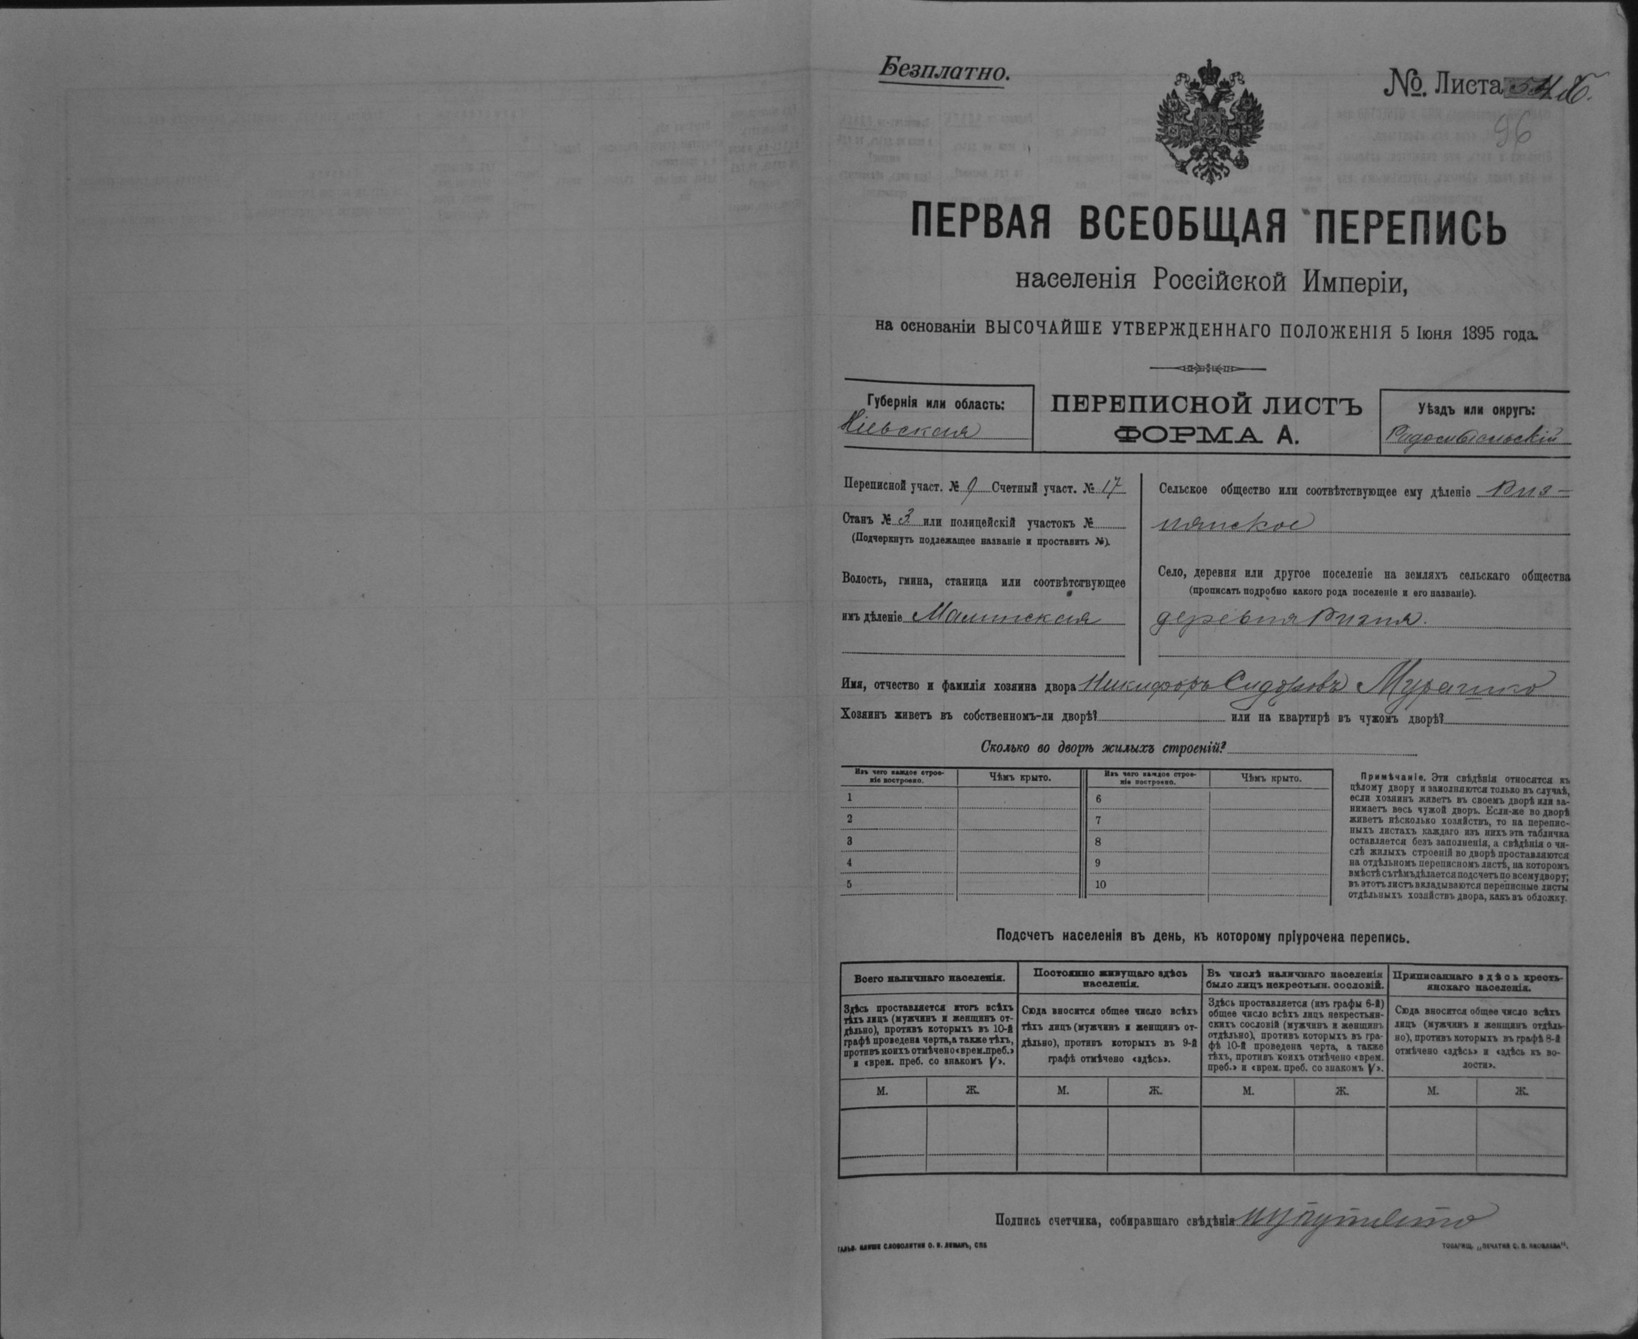 Безплатно.
№. Листа 54 б.
96
ПЕРВАЯ ВСЕОБЩАЯ ПЕРЕПИСЬ
населенія Россійской Имперіи,
на основаніи ВЫСОЧАЙШЕ УТВЕРЖДЕННАГО ПОЛОЖЕНІЯ 5 Іюня 1895 года.
Губернія или область:
Кіевская
ПЕРЕПИСНОЙ ЛИСТЪ
ФОРМА А.
Уѣздъ или округъ:
Радомысльскій
Переписной участ. № 9 Счетный участ. № 17
Станъ № 3 или полицейскій участокъ №
(Подчеркнуть подлежащее названіе и проставить №).
Волость, гмина, станица или соотвѣтствующее
имъ дѣленіе Малинская
Сельское общество или соотвѣтствующее ему дѣленіе Виз-
нянское
Село, деревня или другое поселеніе на земляхъ сельскаго общества
(прописать подробно какого рода поселеніе и его названіе).
деревня Визня.
Имя, отчество и фамилія хозяина двора Никифоръ Сидоровъ Мурашко
Хозяинъ живетъ въ собственномъ-ли дворѣ? или на квартирѣ въ чужомъ дворѣ?
Сколько во дворѣ жилыхъ строеній?
Изъ чего каждое строе-
ніе построено.
Чѣмъ крыто.
Изъ чего каждое строе-
ніе построено.
Чѣмъ крыто.
1
2
3
4
5
6
7
8
9
10
Примѣчаніе. Эти свѣдѣнія относятся къ
цѣлому двору и заполняются только въ случаѣ,
если хозяинъ живетъ въ своемъ дворѣ или за-
нимаетъ весь чужой дворъ. Если-же во дворѣ
живетъ нѣсколько хозяйствъ, то на перепис-
ныхъ листахъ каждаго изъ нихъ эта табличка
оставляется безъ заполненія, а свѣдѣнія о чи-
слѣ жилыхъ строеній во дворѣ проставляются
на отдѣльномъ переписномъ листѣ, на которомъ
вмѣстѣ съ тѣмъ дѣлается подсчетъ по всему двору;
въ этотъ листъ вкладываются переписные листы
отдѣльныхъ хозяйствъ двора, какъ въ обложку.
Подсчетъ населенія въ день, къ которому пріурочена перепись.
Всего наличнаго населенія.
Здѣсь проставляется итогъ всѣхъ
тѣхъ лицъ (мужчинъ и женщинъ от-
дѣльно), противъ которыхъ въ 10-й
графѣ проведена черта, а также тѣхъ,
противъ коихъ отмѣчено «врем. преб.»
и «врем. преб. со знакомъ V».
Постоянно живущаго здѣсь
населенія.
Сюда вносится общее число всѣхъ
тѣхъ лицъ (мужчинъ и женщинъ от-
дѣльно), противъ которыхъ въ 9-й
графѣ отмѣчено «здѣсь».
Въ числѣ наличнаго населенія
было лицъ некрестьян. сословій.
Здѣсь проставляется (изъ графы 6-й)
общее число всѣхъ лицъ некрестьян-
скихъ сословій (мужчинъ и женщинъ
отдѣльно), противъ которыхъ въ гра-
фѣ 10-й проведена черта, а также
тѣхъ, противъ коихъ отмѣчено «врем.
преб.» и «врем. преб. со знакомъ V».
Приписаннаго здѣсь кресть-
янскаго населенія.
Сюда вносится общее число всѣхъ
лицъ (мужчинъ и женщинъ отдѣль-
но), противъ которыхъ въ графѣ 8-й
отмѣчено «здѣсь» и «здѣсь къ во-
лости».
М. Ж. М. Ж. М. Ж. М. Ж.
Подпись счетчика, собиравшаго свѣдѣнія
ГАЛЬВ. КЛИШЕ СЛОВОЛИТНИ О. И. ЛЕМАНЪ, СПБ
ТОВАРИЩ. „ПЕЧАТНЯ С. П. ЯКОВЛЕВА“.